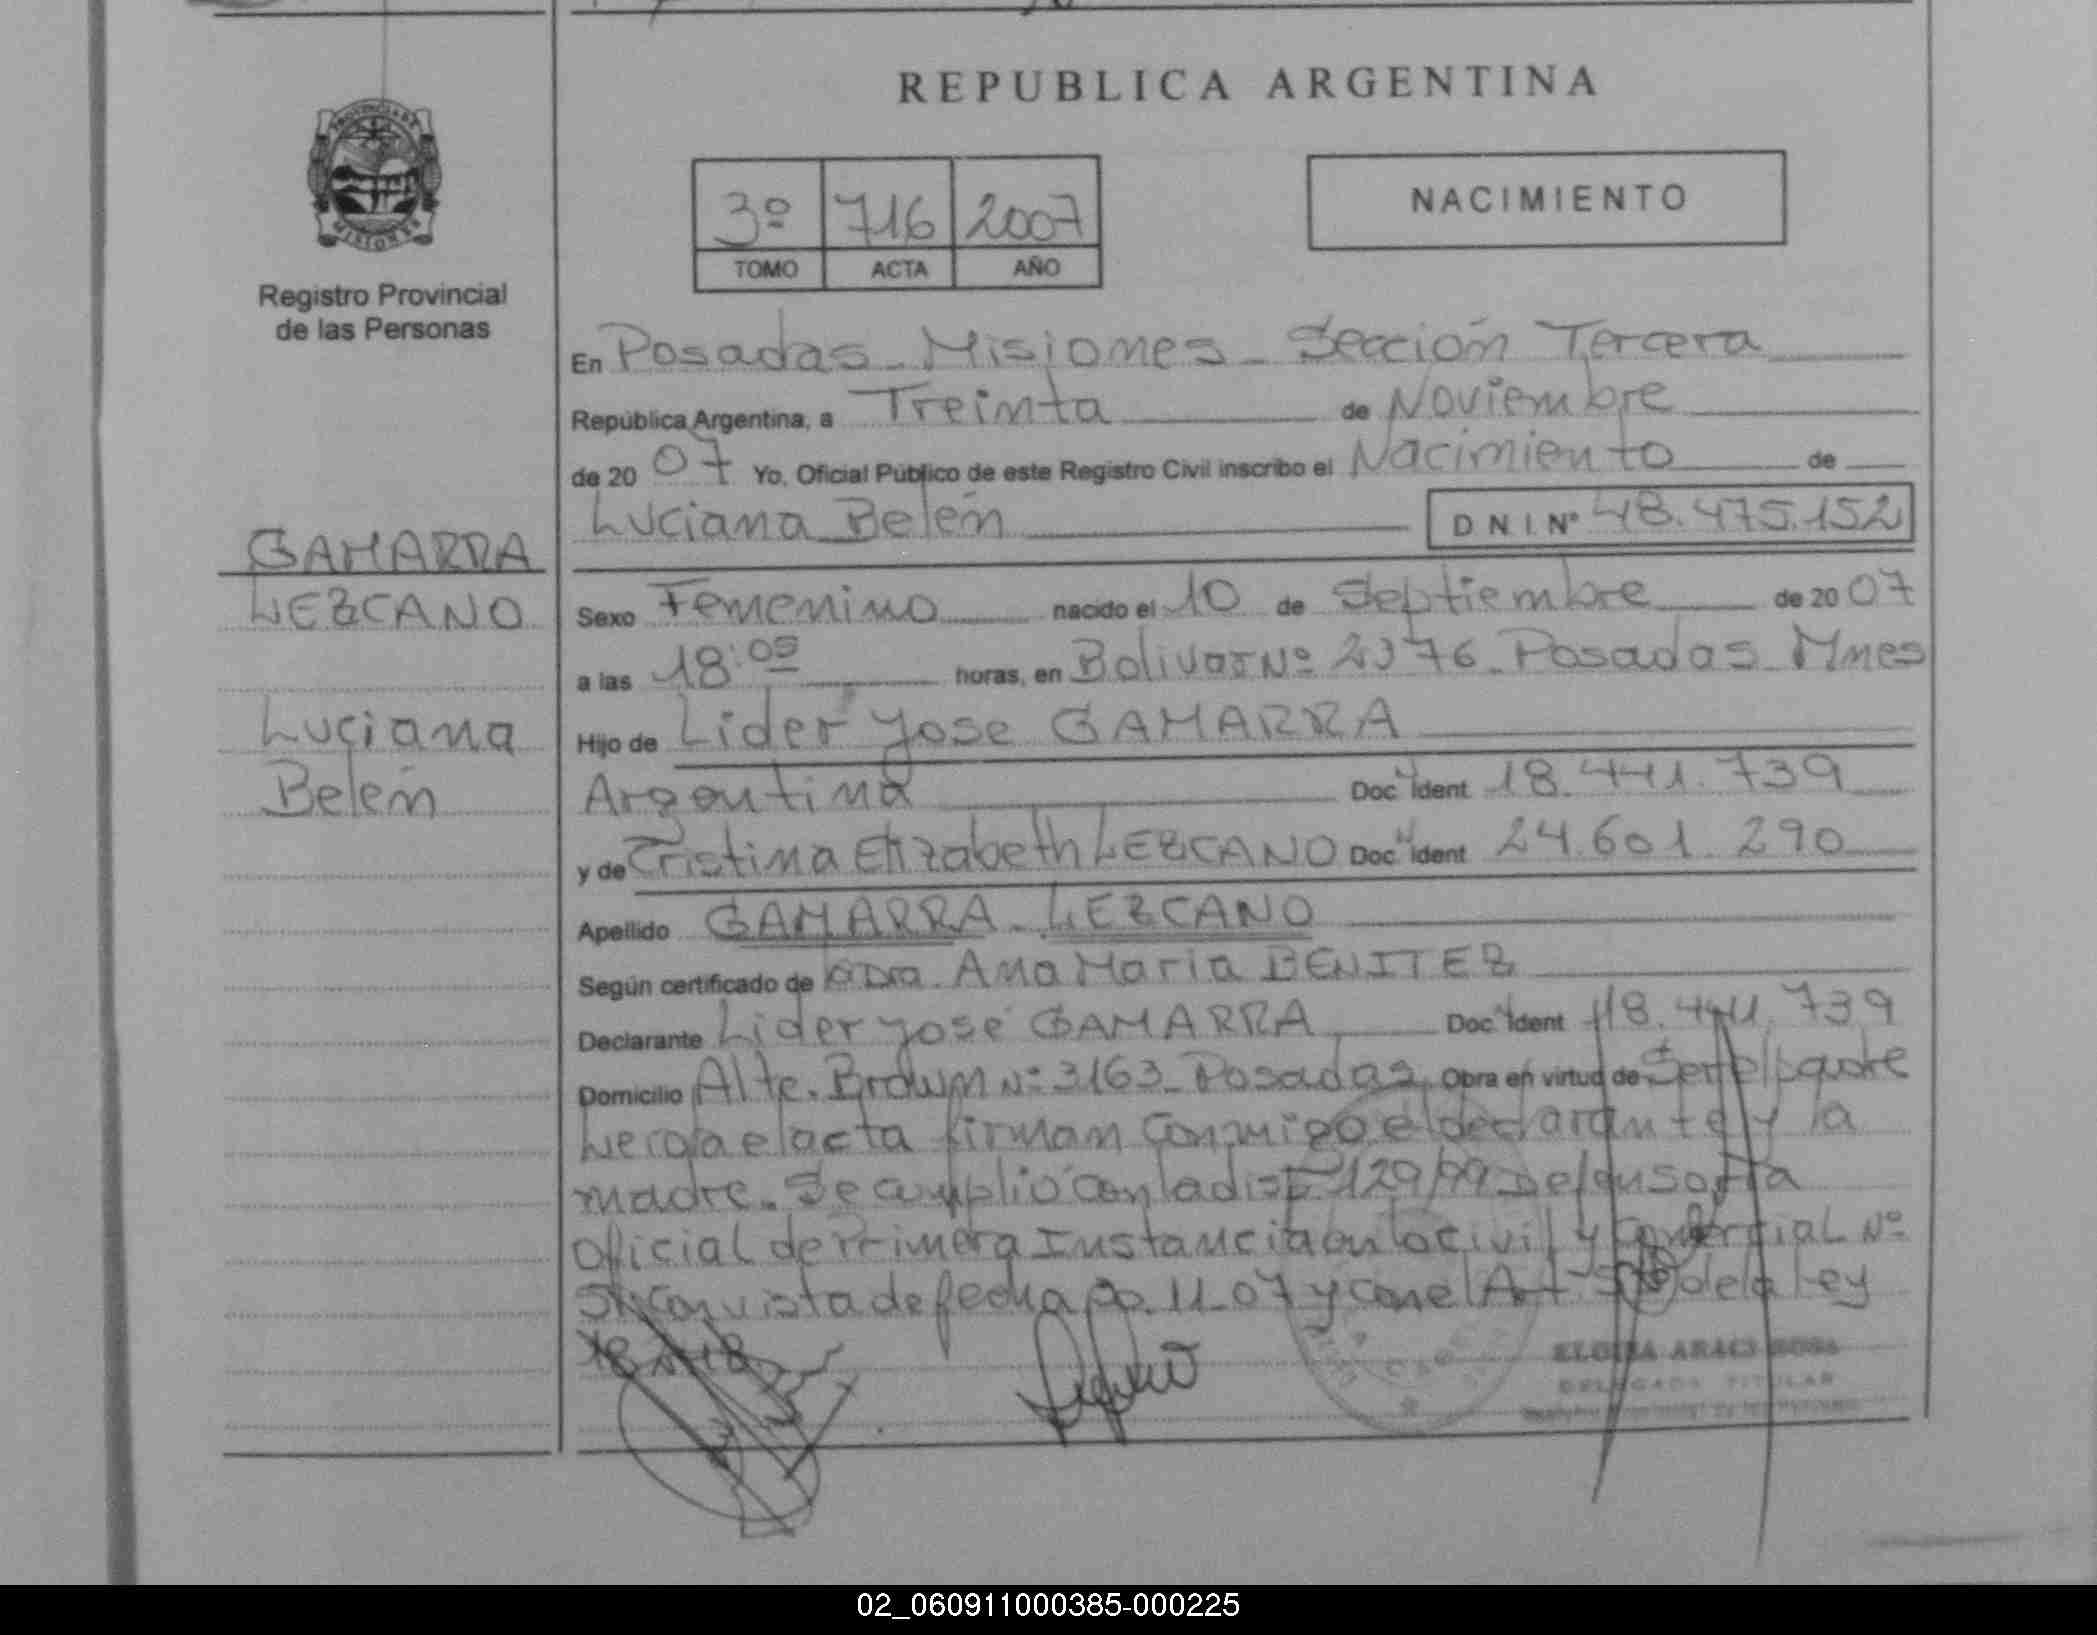 REPUBLICA ARGENTINA
PROVINCIA DE
MISIONES
3º 716 2007
TOMO ACTA AÑO
NACIMIENTO
Registro Provincial
de las Personas
GAMARRA
LEZCANO
Luciana
Belén
En Posadas - Misiones - Sección Tercera
República Argentina, a Treinta de Noviembre
de 20 07 Yo, Oficial Público de este Registro Civil inscribo el Nacimiento de
Luciana Belén D N I Nº 48.475.152
Sexo Femenino nacido el 10 de Septiembre de 20 07
a las 18:05 horas, en Bolivar Nº 2376 - Posadas - Mnes
Hijo de Lider Jose GAMARRA
Argentina Doc Ident 18.441.739
y de Cristina Elizabeth LEZCANO Doc Ident 24.601.290
Apellido GAMARRA - LEZCANO
Según certificado de Dra. Ana Maria BENITEZ
Declarante Lider Jose GAMARRA Doc Ident 18.441.739
Domicilio Alte. Brown Nº 3163 - Posadas Obra en virtud de Ser el padre
Leida el acta firman conmigo el declarante y la
madre. Se cumplió con la disp 129/99 Defensoría
oficial de Primera Instancia en lo Civil y Comercial Nº
con vista de fecha 11-07 y con el Art. de la Ley
DELEGADA TITULAR
02_060911000385-000225